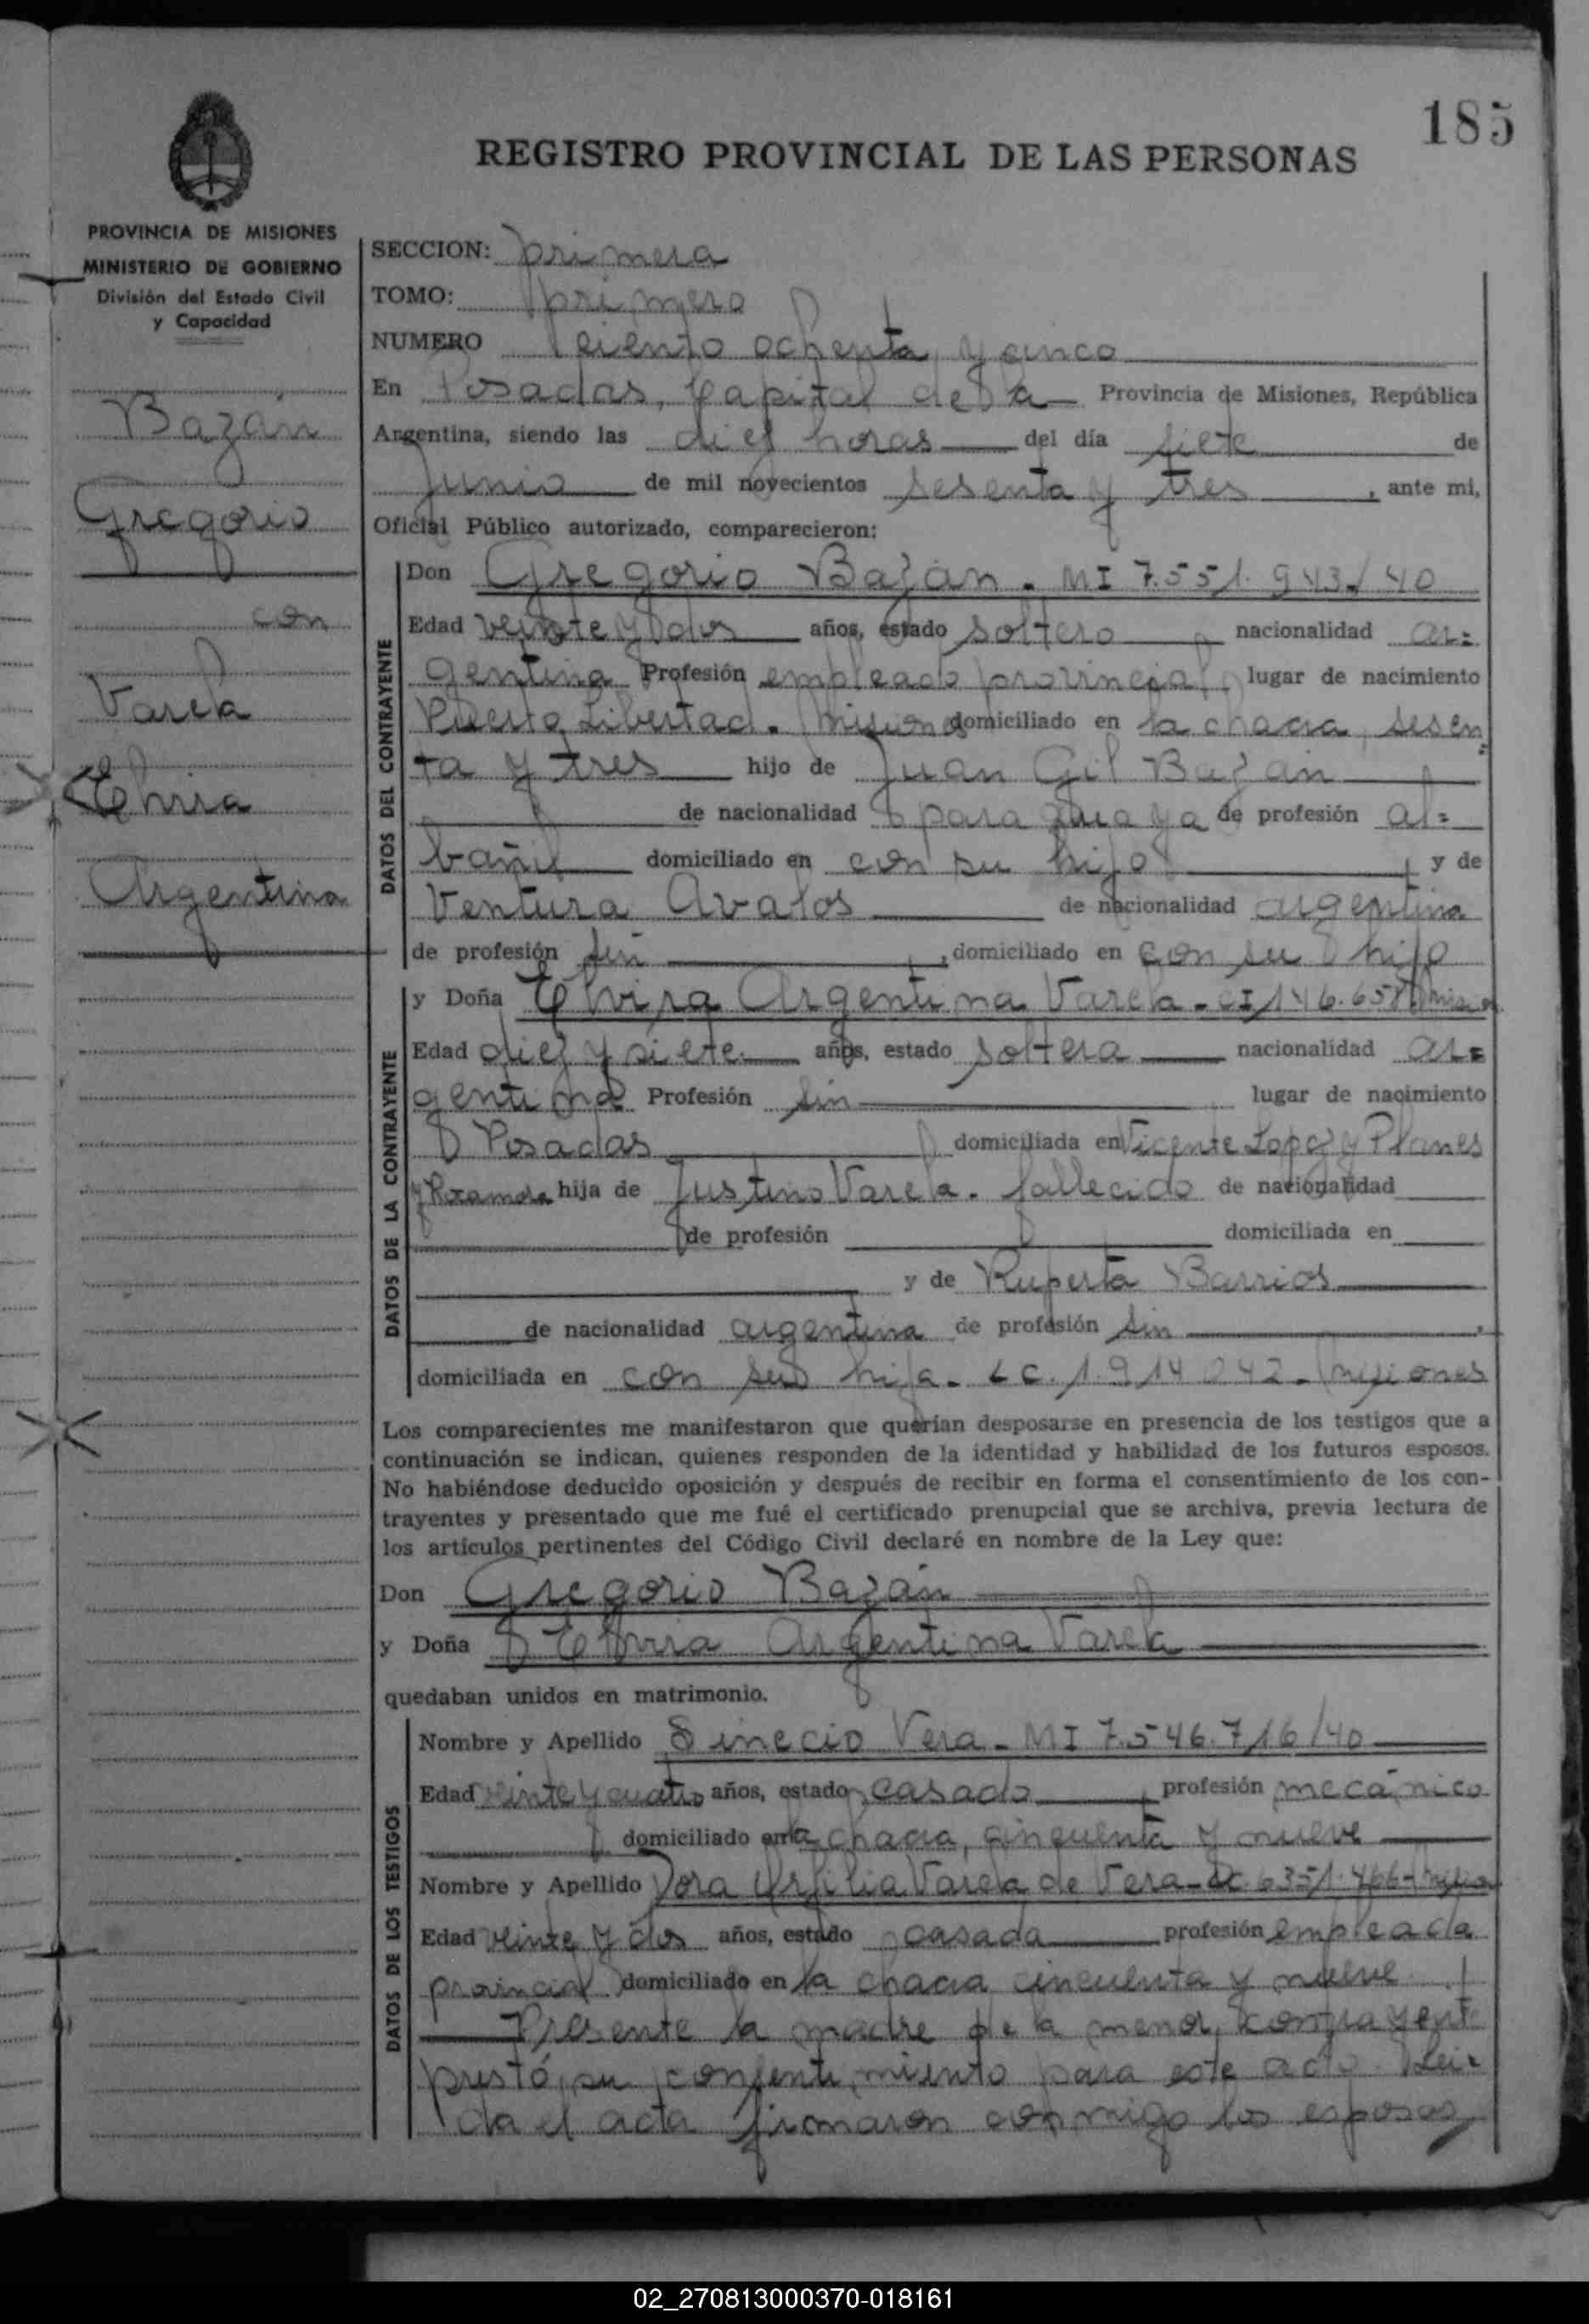 185
REGISTRO PROVINCIAL DE LAS PERSONAS
PROVINCIA DE MISIONES
MINISTERIO DE GOBIERNO
División del Estado Civil
y Capacidad
Bazán
Gregorio
con
Varela
Elvira
Argentina
SECCION: primera
TOMO: primero
NUMERO ciento ochenta y cinco
En Posadas, Capital de la Provincia de Misiones, República
Argentina, siendo las diez horas del día siete de
junio de mil novecientos sesenta y tres, ante mi,
Oficial Público autorizado, comparecieron:
DATOS DEL CONTRAYENTE
Don Gregorio Bazán. MI 7.551.943/40
Edad veinte y dos años, estado soltero, nacionalidad ar=
gentina Profesión empleado provincial, lugar de nacimiento
Puerto Libertad. Misiones domiciliado en la chacra sesen=
ta y tres hijo de Juan Gil Bazán
de nacionalidad paraguaya de profesión al=
bañil domiciliado en con su hijo, y de
Ventura Avalos de nacionalidad argentina
de profesión sin, domiciliado en con su hijo
DATOS DE LA CONTRAYENTE
y Doña Elvira Argentina Varela - CI 146.658
Edad diez y siete años, estado soltera nacionalidad ar=
gentina Profesión sin lugar de nacimiento
Posadas domiciliada en Vicente Lopez y Planes
y hija de Justino Varela. fallecido de nacionalidad
de profesión domiciliada en
y de Ruperta Barrios
de nacionalidad argentina de profesión sin,
domiciliada en con su hija. LC. 1.914.042. Misiones
Los comparecientes me manifestaron que querían desposarse en presencia de los testigos que a
continuación se indican, quienes responden de la identidad y habilidad de los futuros esposos.
No habiéndose deducido oposición y después de recibir en forma el consentimiento de los con-
trayentes y presentado que me fué el certificado prenupcial que se archiva, previa lectura de
los artículos pertinentes del Código Civil declaré en nombre de la Ley que:
Don Gregorio Bazán
y Doña Elvira Argentina Varela
quedaban unidos en matrimonio.
DATOS DE LOS TESTIGOS
Nombre y Apellido Sinecio Vera - MI 7.546.716/40
Edad veinte y cuatro años, estado casado, profesión mecánico
domiciliado en la chacra cincuenta y nueve
Nombre y Apellido Dora Varela de Vera - LC. 6351.466 -
Edad veinte y dos años, estado casada profesión empleada
provincial domiciliado en la chacra cincuenta y nueve
Presente la madre de la menor contrayente
prestó su consentimiento para este acto. Leí=
da el acta firmaron conmigo los esposos,
02_270813000370-018161